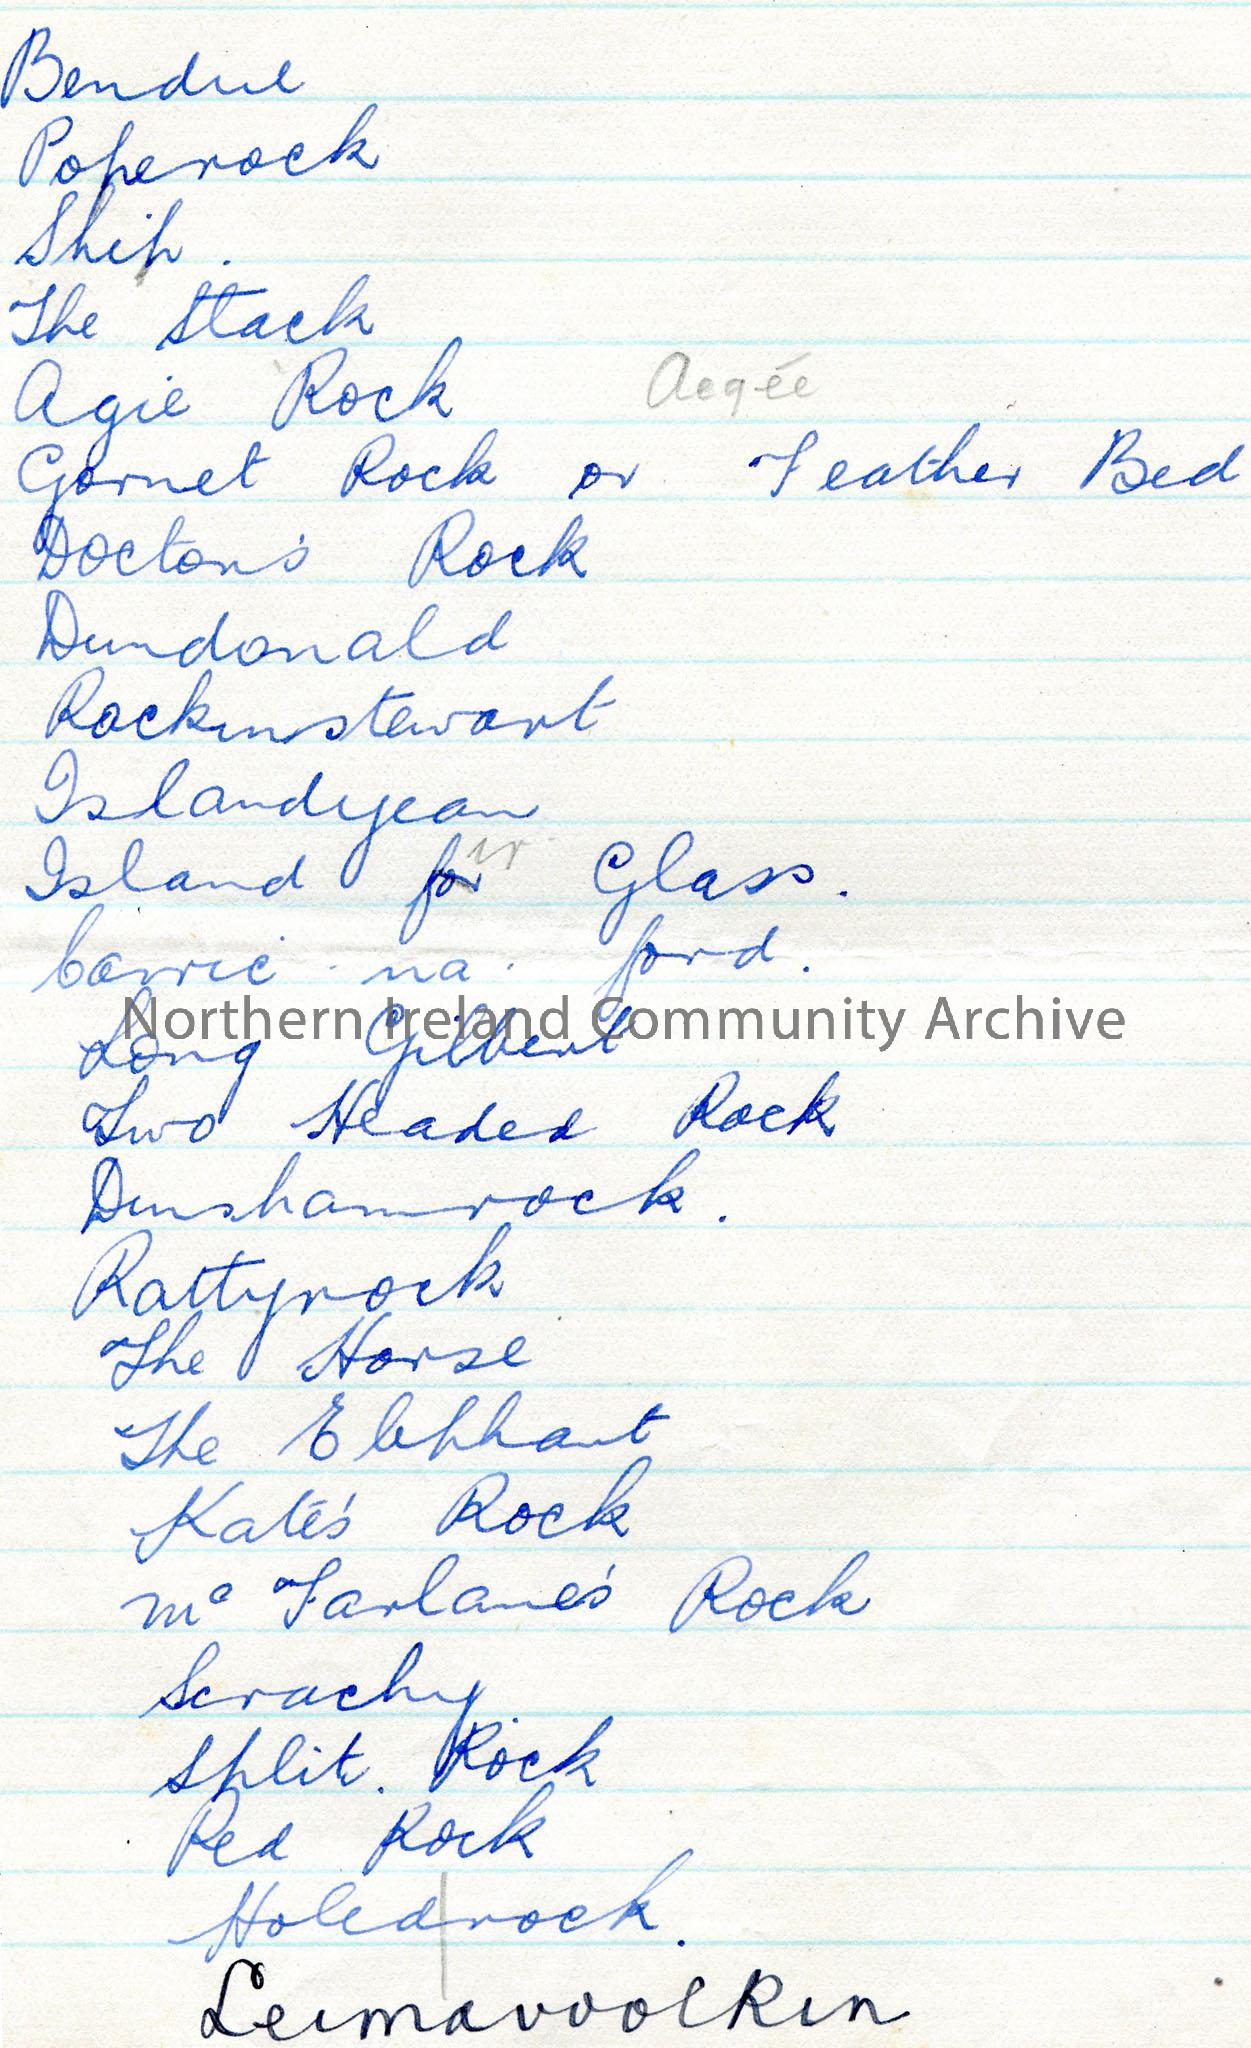 Bendue
Poperock
Ship.
The Stack
Agie Rock Aegée
Gornet Rock or Feather Bed
Doctor's Rock
Dundonald
Rockinstewart
Islandyean
Island for ir Glass.
Carric . na . ford.
Northern Ireland Community Archive
Long Gilbert
Two Headed Rock
Dunshamrock.
Rattyrock
The Horse
The Elephhant
Kate's Rock
Mc Farlane's Rock
Scrachy
Split. Rock
Red Rock
Holedrock.
Leimavoolkin